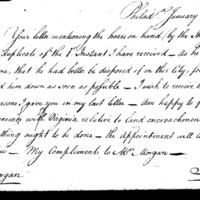 Philad.ª January
Your letter mentioning the horse on hand, by the
Duplicate of the 1st Instant I have received – as he
me, that he had better be disposed of in this City, for
ed him down as soon as possible – I wish to receive
reasons I gave you in my last letter – I am happy to
with Virginia relative to land encroachmen
thing ought to be done – the appointment will
u – My Compliments to Mrs Morgan –
organ